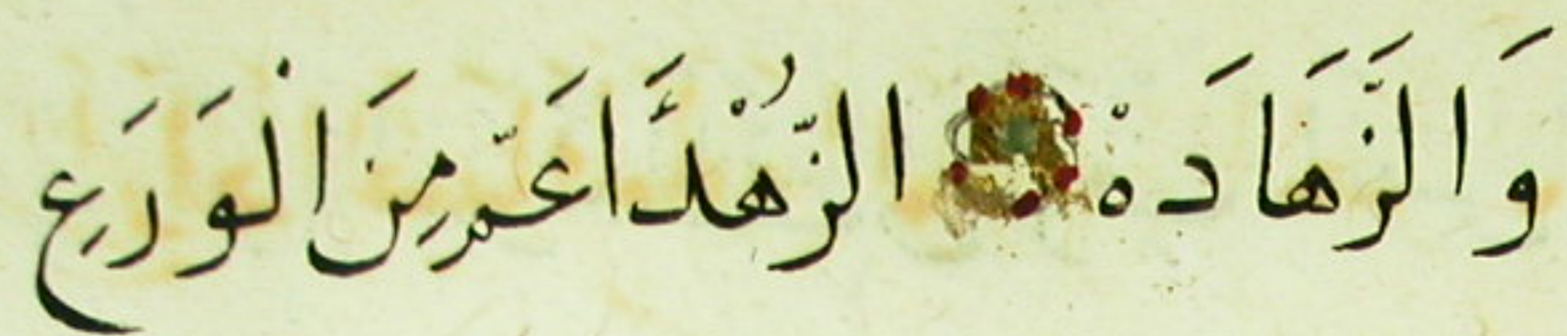 وَالزَّهَادَهْ الزُّهْدُ اَعَمُّ مِنَ الْوَرَعِ